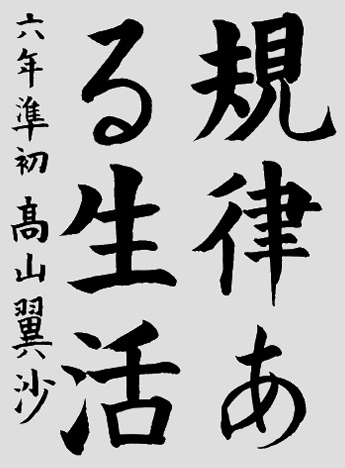 規律あ
る生活
六年準初 高山翼沙